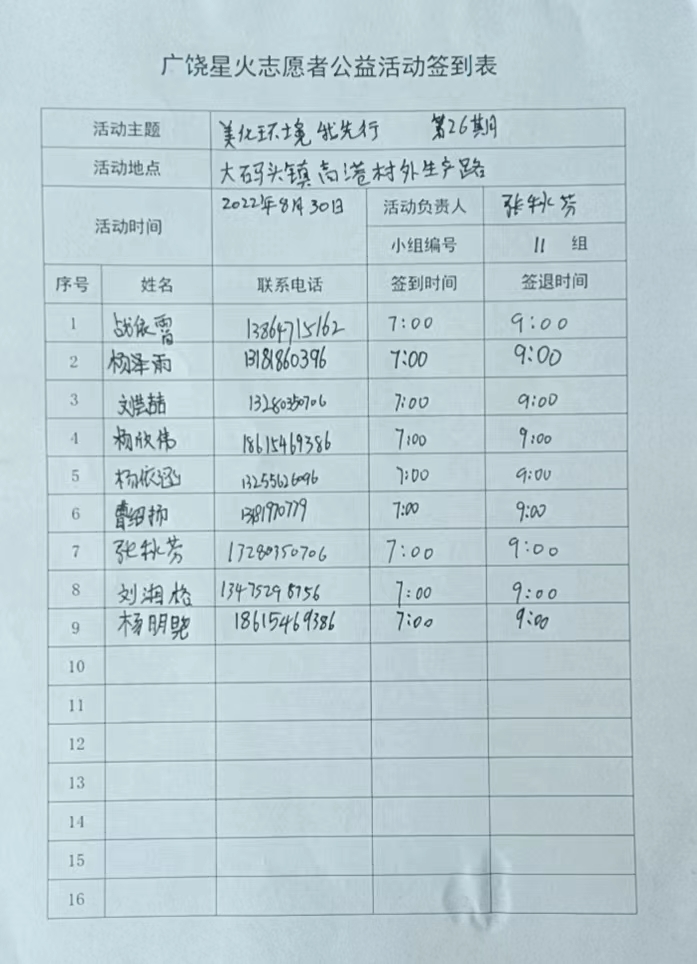 广饶星火志愿者公益活动签到表
活动主题 美化环境 我先行 第26期
活动地点 大码头镇高港村外生产路
活动时间 2022年8月30日 活动负责人 张秋芳
小组编号 11 组
序号 姓名 联系电话 签到时间 签退时间
1 战依霄 13864715162 7:00 9:00
2 杨泽雨 13181860396 7:00 9:00
3 刘浩喆 13280350706 7:00 9:00
4 杨欣伟 18615469386 7:00 9:00
5 杨依涵 13255626096 7:00 9:00
6 曹绍扬 7:00 9:00
7 张秋芳 13280350706 7:00 9:00
8 刘湘格 13475298756 7:00 9:00
9 杨明晓 18615469386 7:00 9:00
10
11
12
13
14
15
16